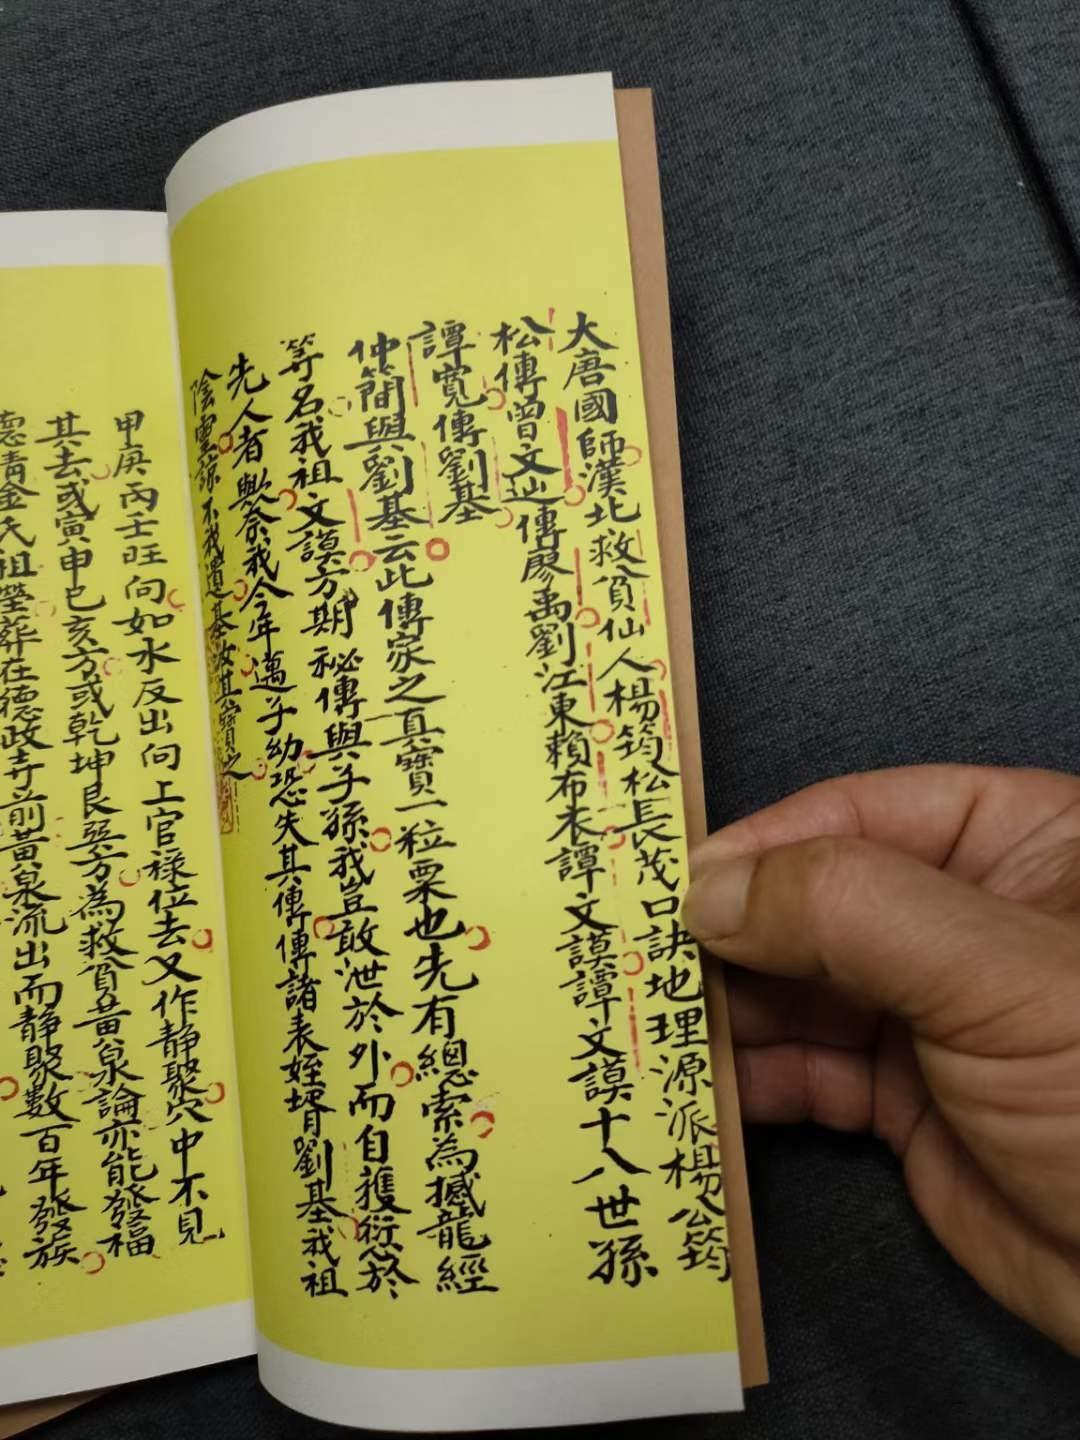 大唐國師漢北救貧仙人楊筠松長茂口訣地理源派楊公筠
松傳曾文辿傳廖禹劉江東賴布衣譚文謨譚文謨十八世孫
譚寬傳劉基
仲簡與劉基云此傳家之真寶一粒粟也先有總索為撼龍經
等名我祖文謨方期秘傳與子孫我豈敢泄於外而自獲愆於
先人者與奈我今年邁子幼恐失其傳傳諸表姪壻劉基我祖
陰靈諒不我遺基汝其寶之
甲庚丙壬旺向如水反出向上官祿位去又作靜聚穴中不見
其去或寅申巳亥方或乾坤艮巽方為救貧黃泉論亦能發福
德清金氏祖塋葬在德政寺前黃泉流出而靜聚數百年發族